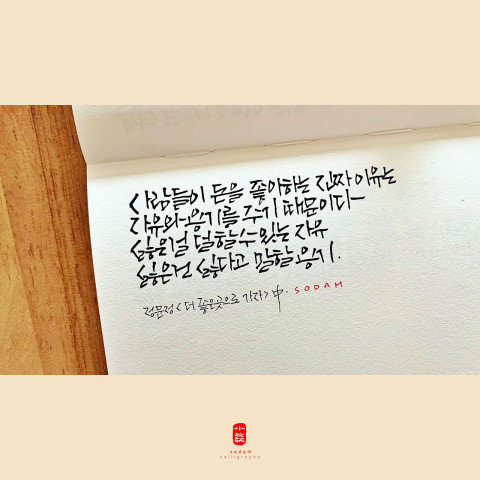 사람들이 돈을 좋아하는 진짜 이유는
자유와 용기를 주기 때문이다
싫은걸 덜 할 수 있는 자유
싫은건 싫다고 말할 용기.
정문정 <더 좋은 곳으로 가자> 中. SODAM
小談
sodam
calligraphy